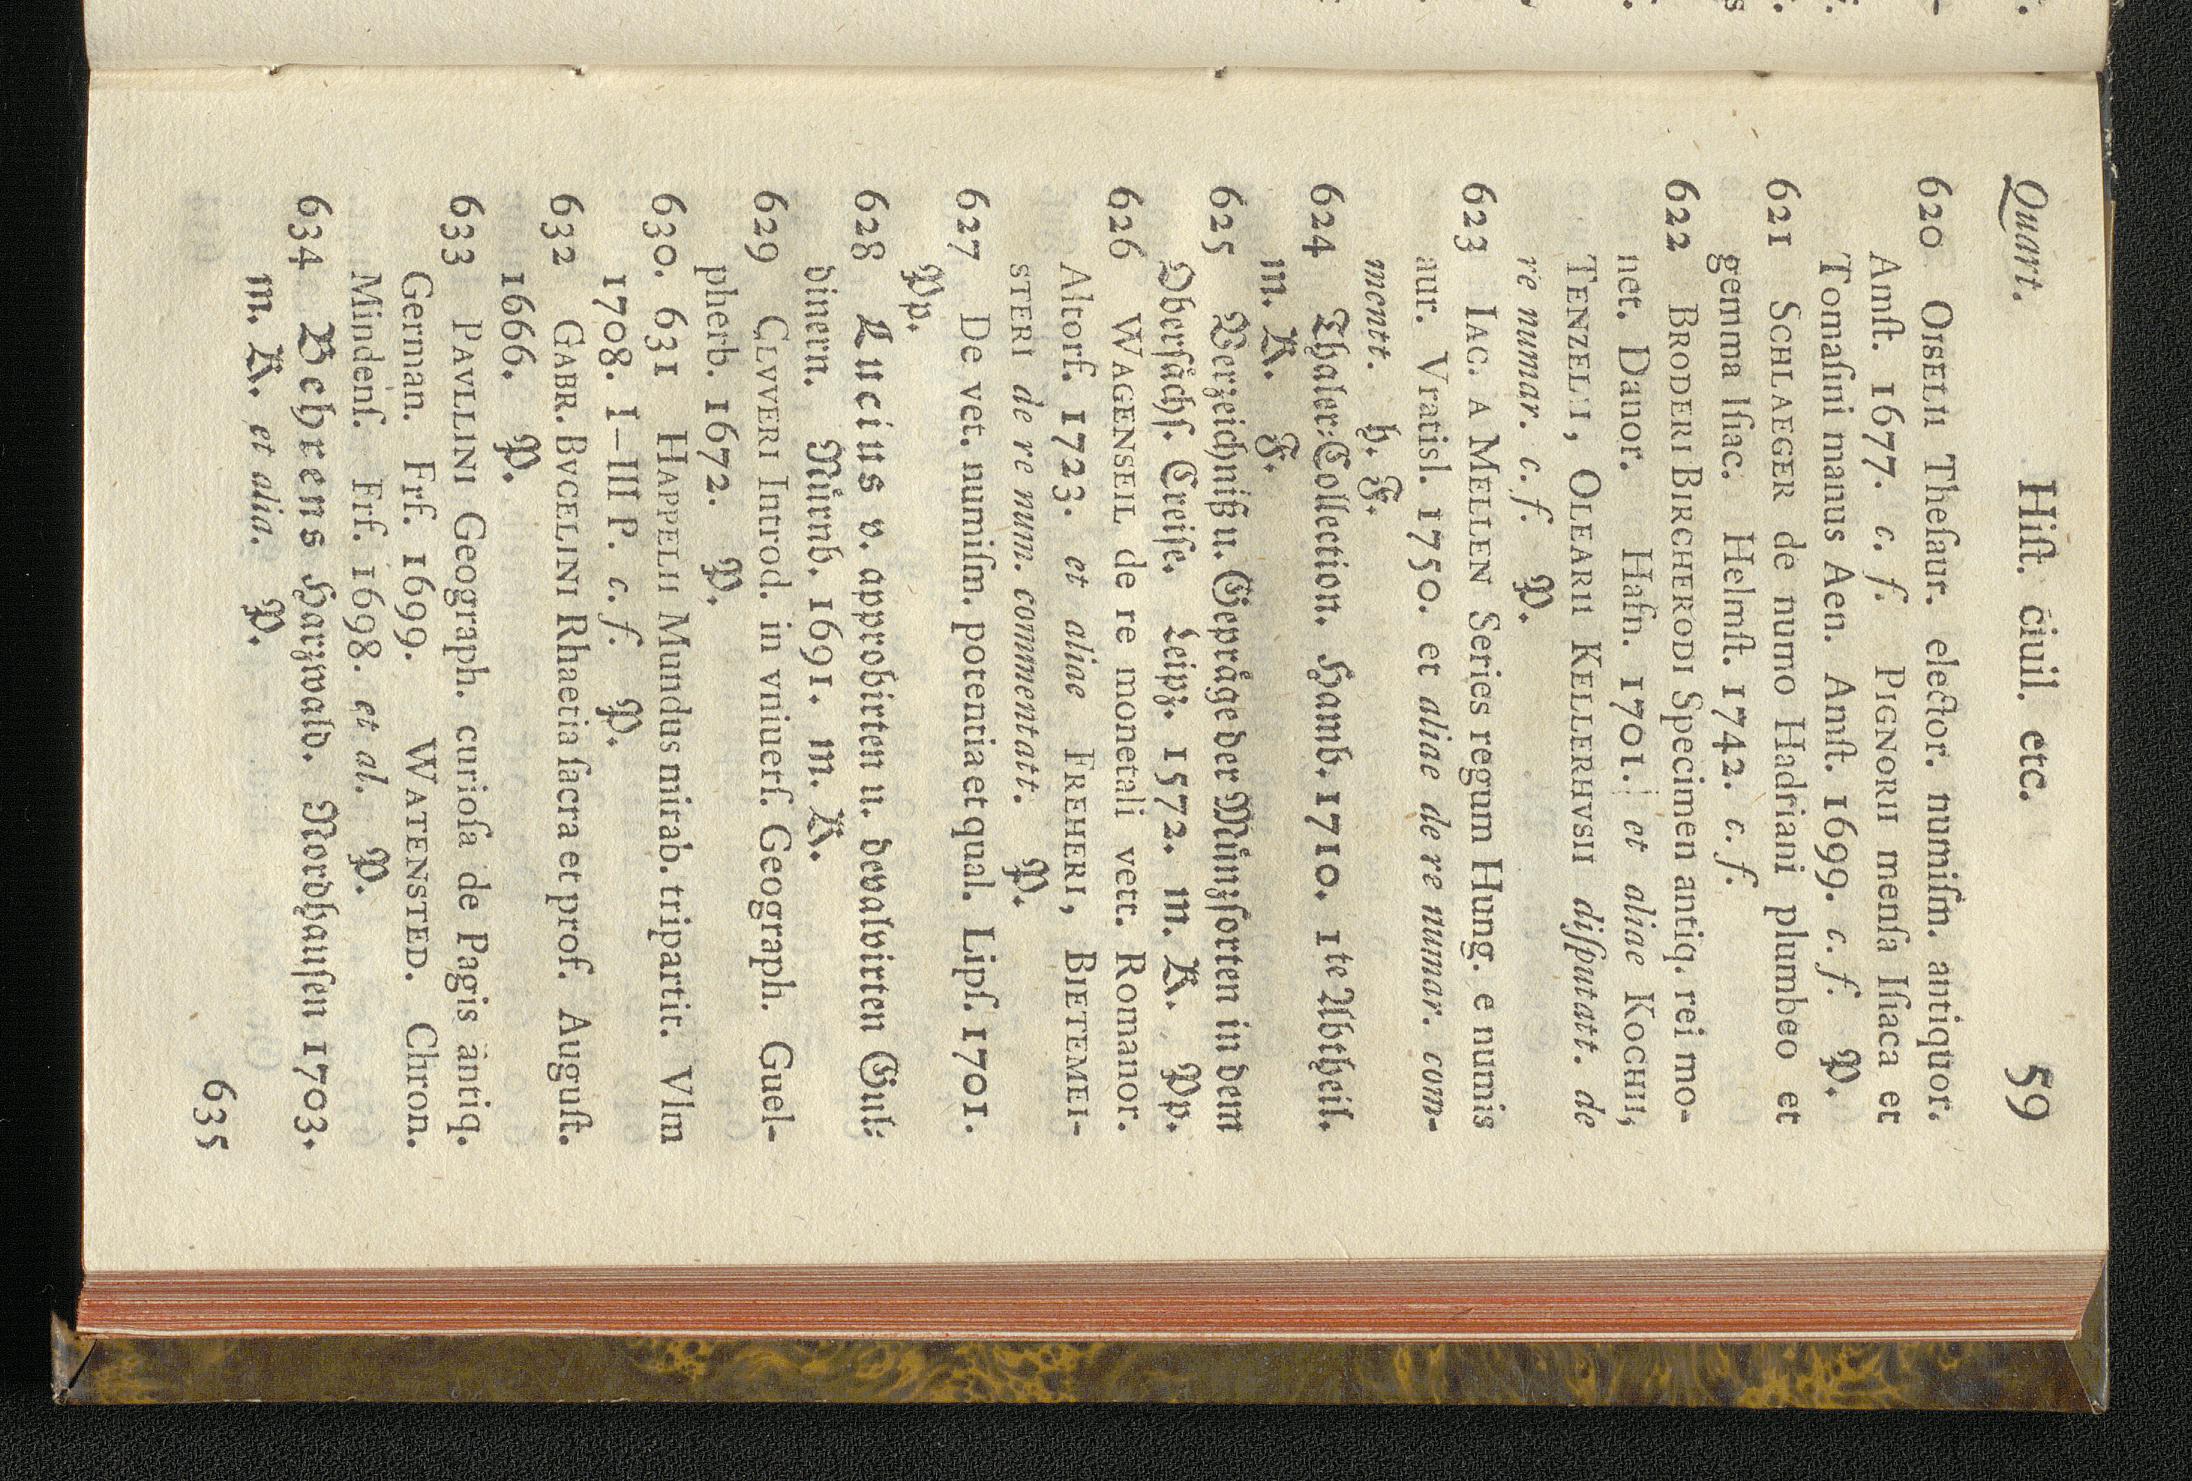 Quart. Hiſt. ciuil. etc. 59
620 OISELII Theſaur. elector. numiſm. antiquor.
Amſt. 1677. c. f. PIGNORII menſa Iſiaca et
Tomaſini manus Aen. Amſt. 1699. c. f. P.
621 SCHLAEGER de numo Hadriani plumbeo et
gemma Iſiac. Helmſt. 1742. c. f.
622 BRODERI BIRCHERODI Specimen antiq. rei mo-
net. Danor. Hafn. 1701. et aliae KOCHII,
TENZELII, OLEARII KELLERHVSII diſputatt. de
re numar. c. f. P.
623 IAC. A MELLEN Series regum Hung. e numis
aur. Vratisl. 1750. et aliae de re numar. com-
mentt. h. F.
624 Thaler-Collection. Hamb. 1710. 1te Abtheil.
m. K. F.
625 Verzeichniß u. Gepräge der Münzſorten in dem
Oberſächſ. Creiſe. Leipz. 1572. m. K. Pp.
626 WAGENSEIL de re monetali vett. Romanor.
Altorf. 1723. et aliae FREHERI, BIETEMEI-
STERI de re num. commentatt. P.
627 De vet. numiſm. potentia et qual. Lipſ. 1701.
Pp.
628 Lucius v. approbirten u. devalvirten Gul-
dinern. Nürnb. 1691. m. K.
629 CLVVERI Introd. in vniuerſ. Geograph. Guel-
pherb. 1672. P.
630. 631 HAPPELII Mundus mirab. tripartit. Vlm
1708. I–III P. c. f. P.
632 GABR. BVCELINI Rhaetia ſacra et prof. Auguſt.
1666. P.
633 PAVLLINI Geograph. curioſa de Pagis antiq.
German. Frf. 1699. WATENSTED. Chron.
Mindenſ. Frf. 1698. et al. P.
634 Behrens Harzwald. Nordhauſen 1703.
m. K. et alia. P.
635